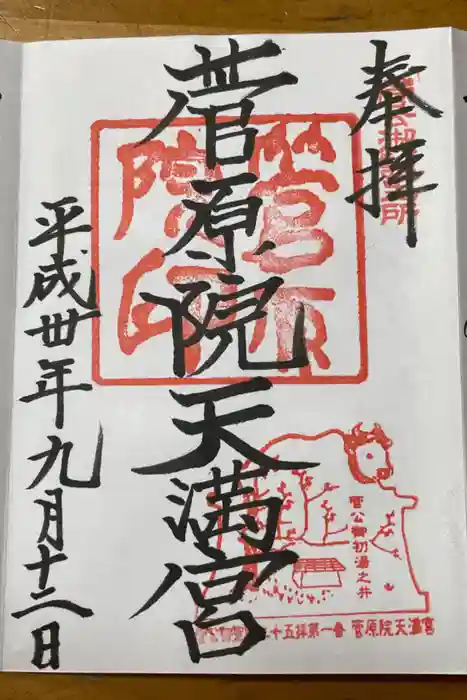 奉拝
菅公御誕生所
菅原院天満宮
菅原院印
平成丗年九月十二日
菅公御初湯之井
二十五拝第一番 菅原院天満宮